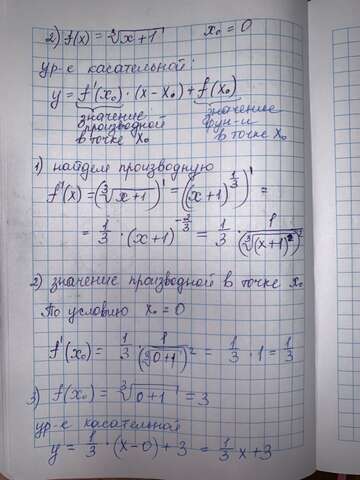 2) f(x) = ³√x+1   x₀ = 0
ур-е касательной:
y = f'(x₀) · (x - x₀) + f(x₀)
значение   значение
производной   фун-и
в точке x₀   в точке x₀
1) найдем производную
f'(x) = (³√x+1)' = ((x+1)^(1/3))' =
= 1/3 · (x+1)^(-2/3) = 1/3 · 1/(³√(x+1)²)
2) значение производной в точке x₀
По условию x₀ = 0
f'(x₀) = 1/3 · 1/(³√0+1)² = 1/3 · 1 = 1/3
3) f(x₀) = ³√0+1 = 3
ур-е касательной
y = 1/3 · (x-0) + 3 = 1/3 x + 3